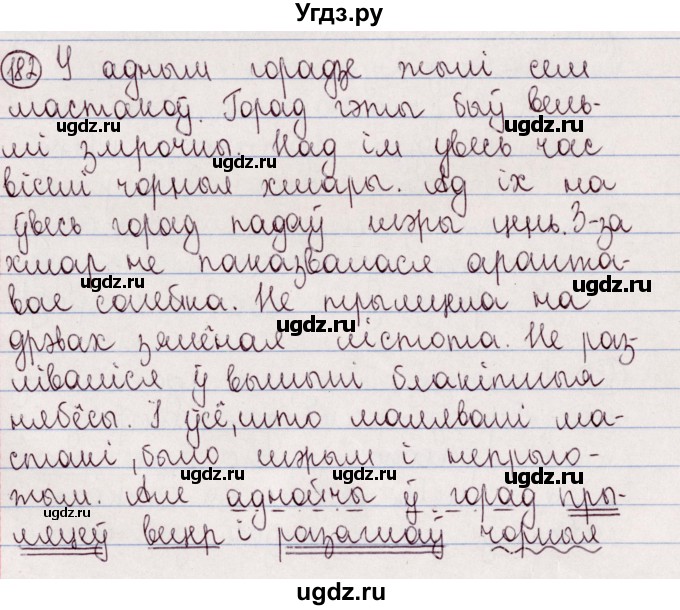 Угдз.ру
182 У адным горадзе жылі сем
мастакоў. Горад гэты быў вель-
мі змрочны. Над ім увесь час
віселі чорныя хмары. Ад іх на
ўвесь горад падаў шэры цень. З-за
хмар не паказвалася аранжа-
вае сонейка. Не трымцела на
дрэвах зялёная лістота. Не раз-
ліваліся ў вышыні блакітныя
нябёсы. І ўсё, што малявалі ма-
стакі, было шэрым і непрыго-
жым. Але аднойчы ў горад пры-
ляцеў вецер і разагнаў чорныя
ugdz.ru
ugdz.ru
ugdz.ru
ugdz.ru
ugdz.ru
ugdz.ru
ugdz.ru
ugdz.ru
ugdz.ru
ugdz.ru
ugdz.ru
ugdz.ru
ugdz.ru
ugdz.ru